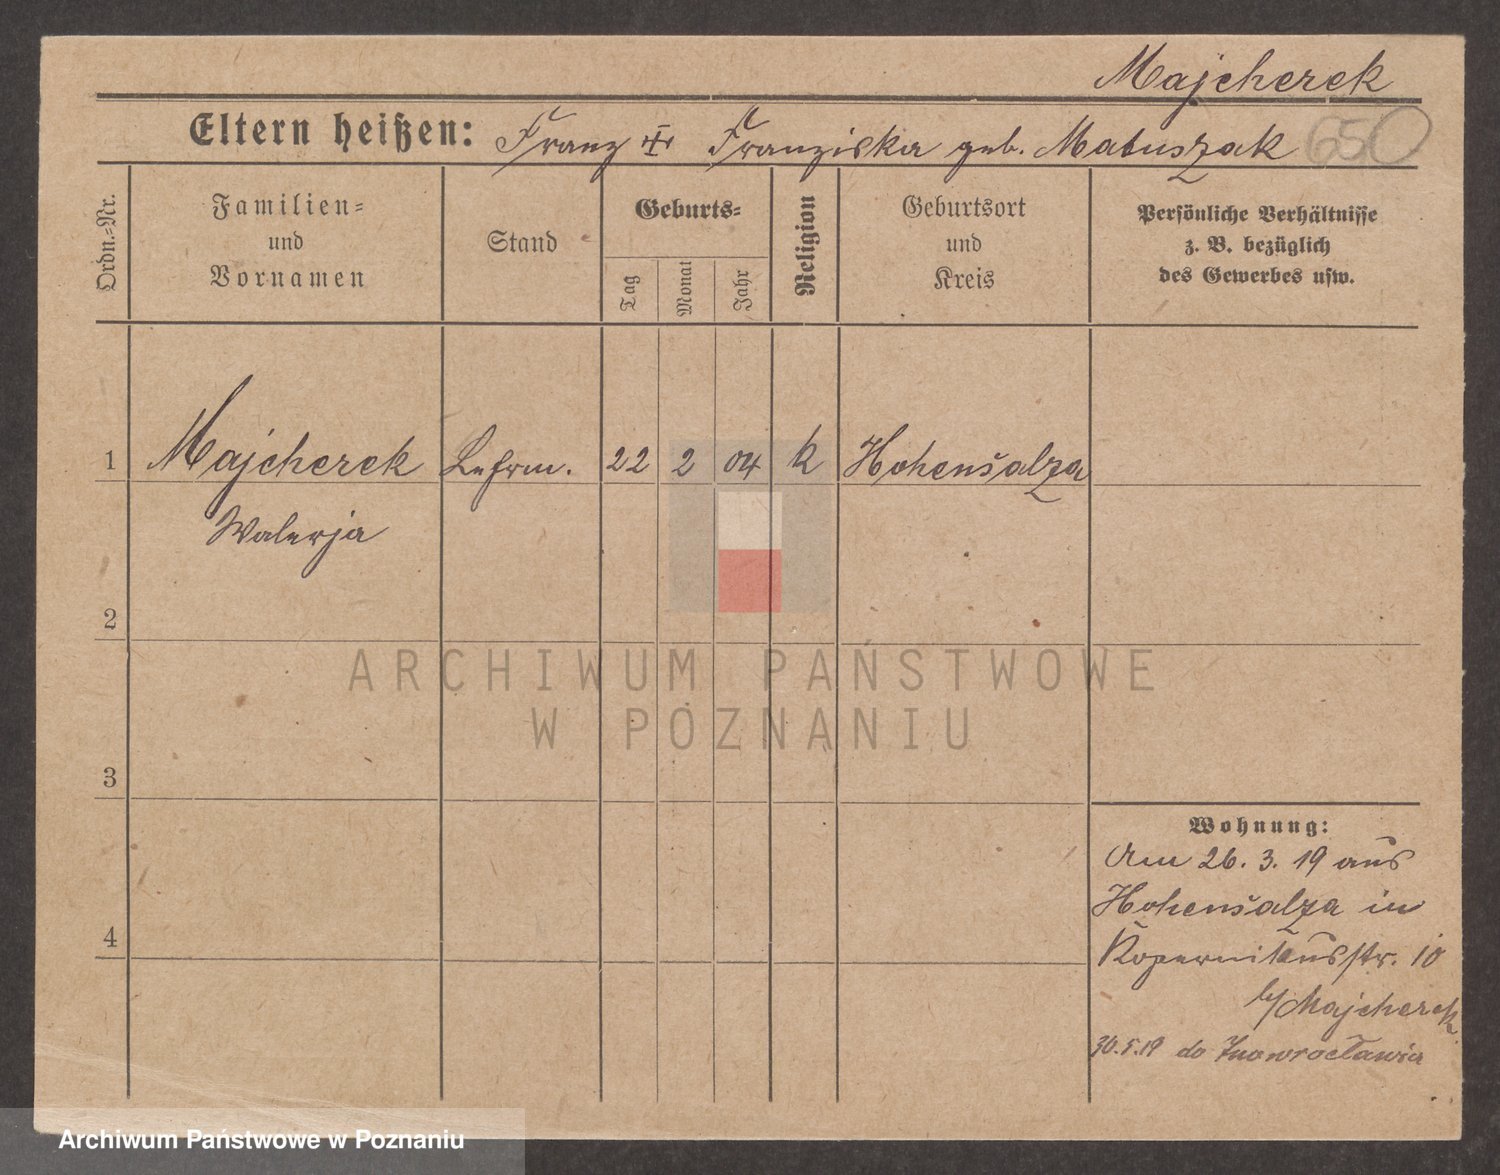 Majcherek
Eltern heißen: Franz ♰ Franziska geb. Matuszak 650
Ordn.-Nr.
Familien-
und
Vornamen
Stand
Geburts-
Tag
Monat
Jahr
Religion
Geburtsort
und
Kreis
Persönliche Verhältnisse
z. B. bezüglich
des Gewerbes usw.
1 Majcherek Lehrm. 22 2 04 k Hohensalza
Walerja
2
ARCHIWUM PAŃSTWOWE
W POZNANIU
3
Wohnung:
Am 26. 3. 19 aus
Hohensalza in
4
Kopernikusstr. 10
b/ Majcherek
30.5.19 do Inowrocławia
Archiwum Państwowe w Poznaniu